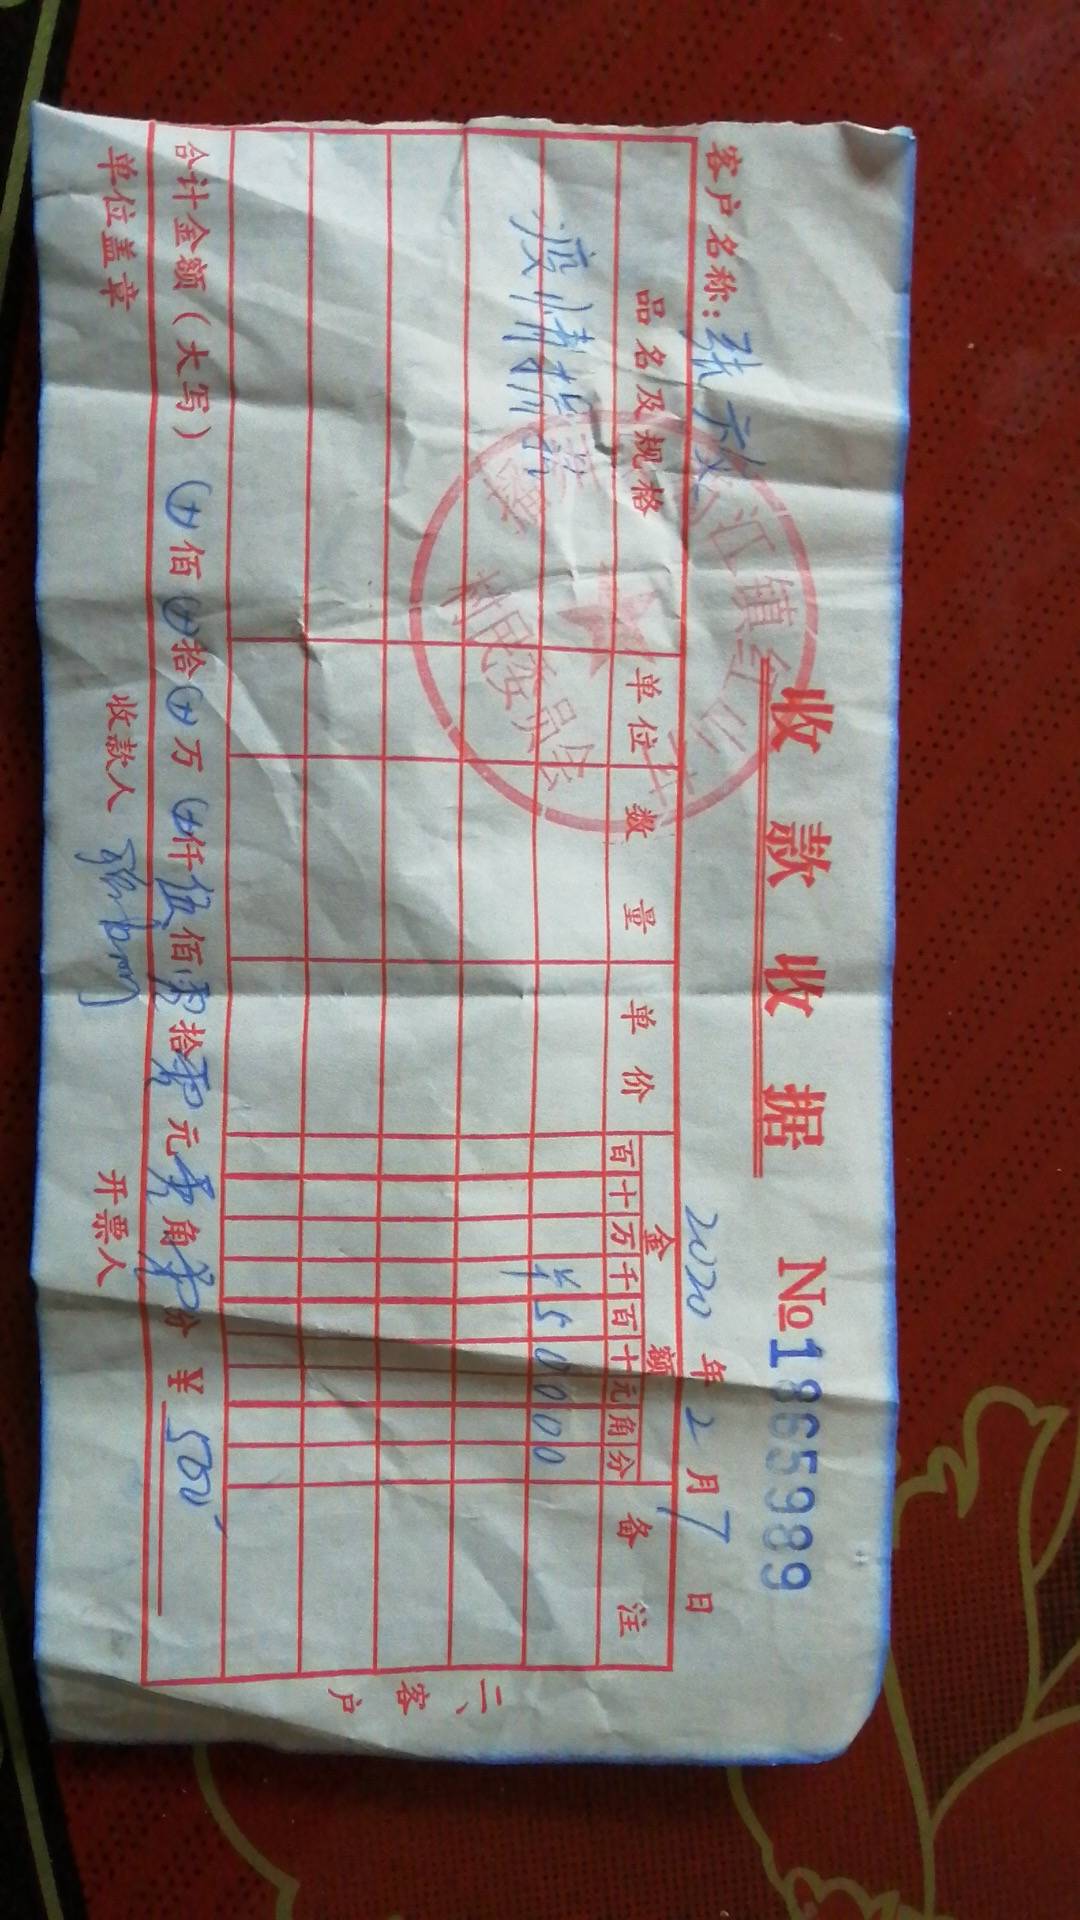 收款收据 №1865989
客户名称: 张 2020年2月7日
品名及规格 单位 数量 单价 金额 备注
百十万千百十元角分
疫情捐款 ¥50000
合计金额(大写) ⊕佰⊕拾⊕万⊕仟伍佰零拾零元零角零分 ¥ 500
单位盖章 收款人 开票人
二、客户
江镇
村民委员会